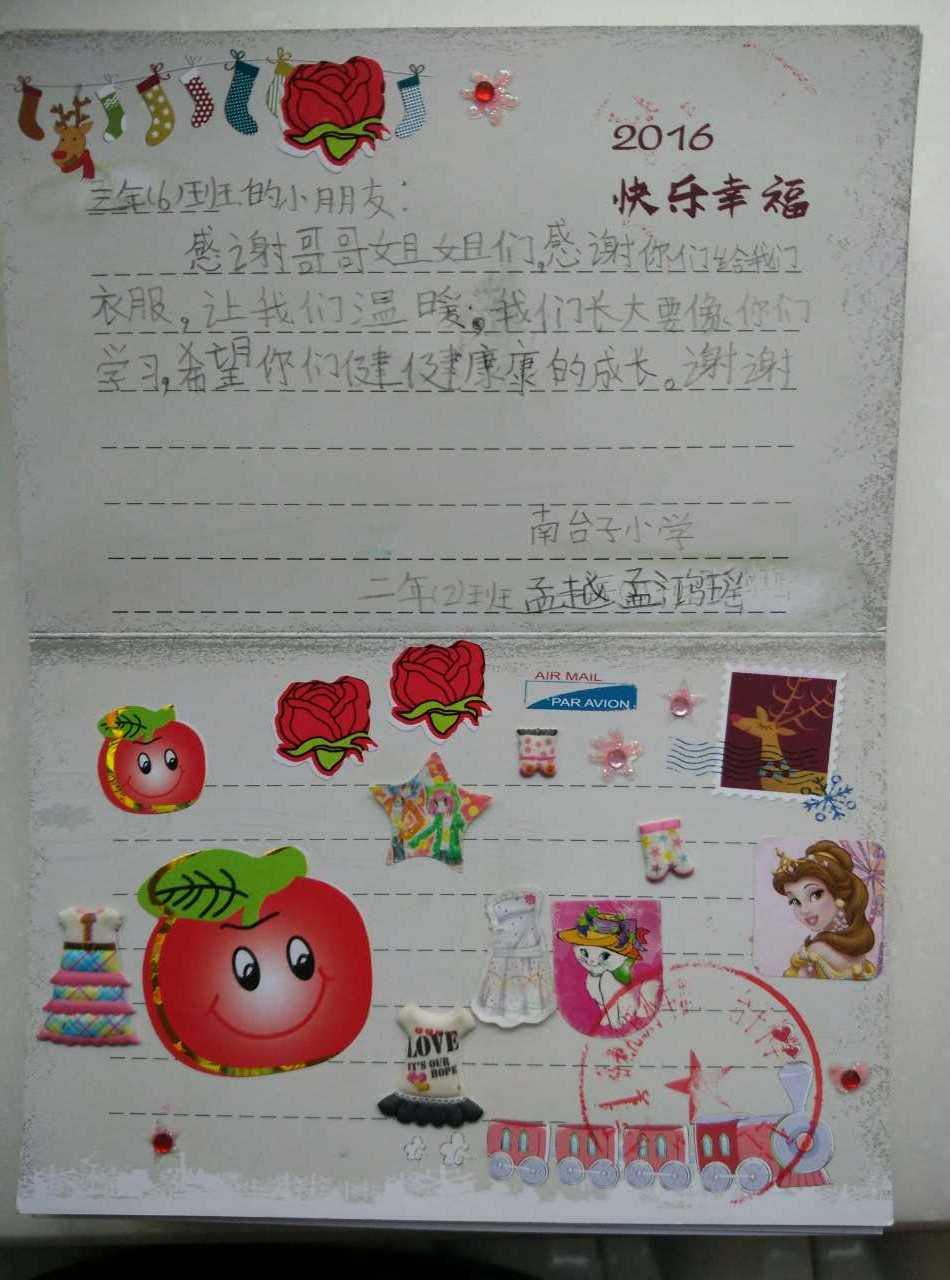 2016
快乐幸福
三年(6)班的小朋友:
感谢哥哥姐姐们,感谢你们给我们
衣服,让我们温暖;我们长大要像你们
学习,希望你们健健康康的成长。谢谢
南台子小学
二年(2)班 孟越 孟鸿瑶
AIR MAIL
PAR AVION
LOVE
IT'S OUR
HOPE